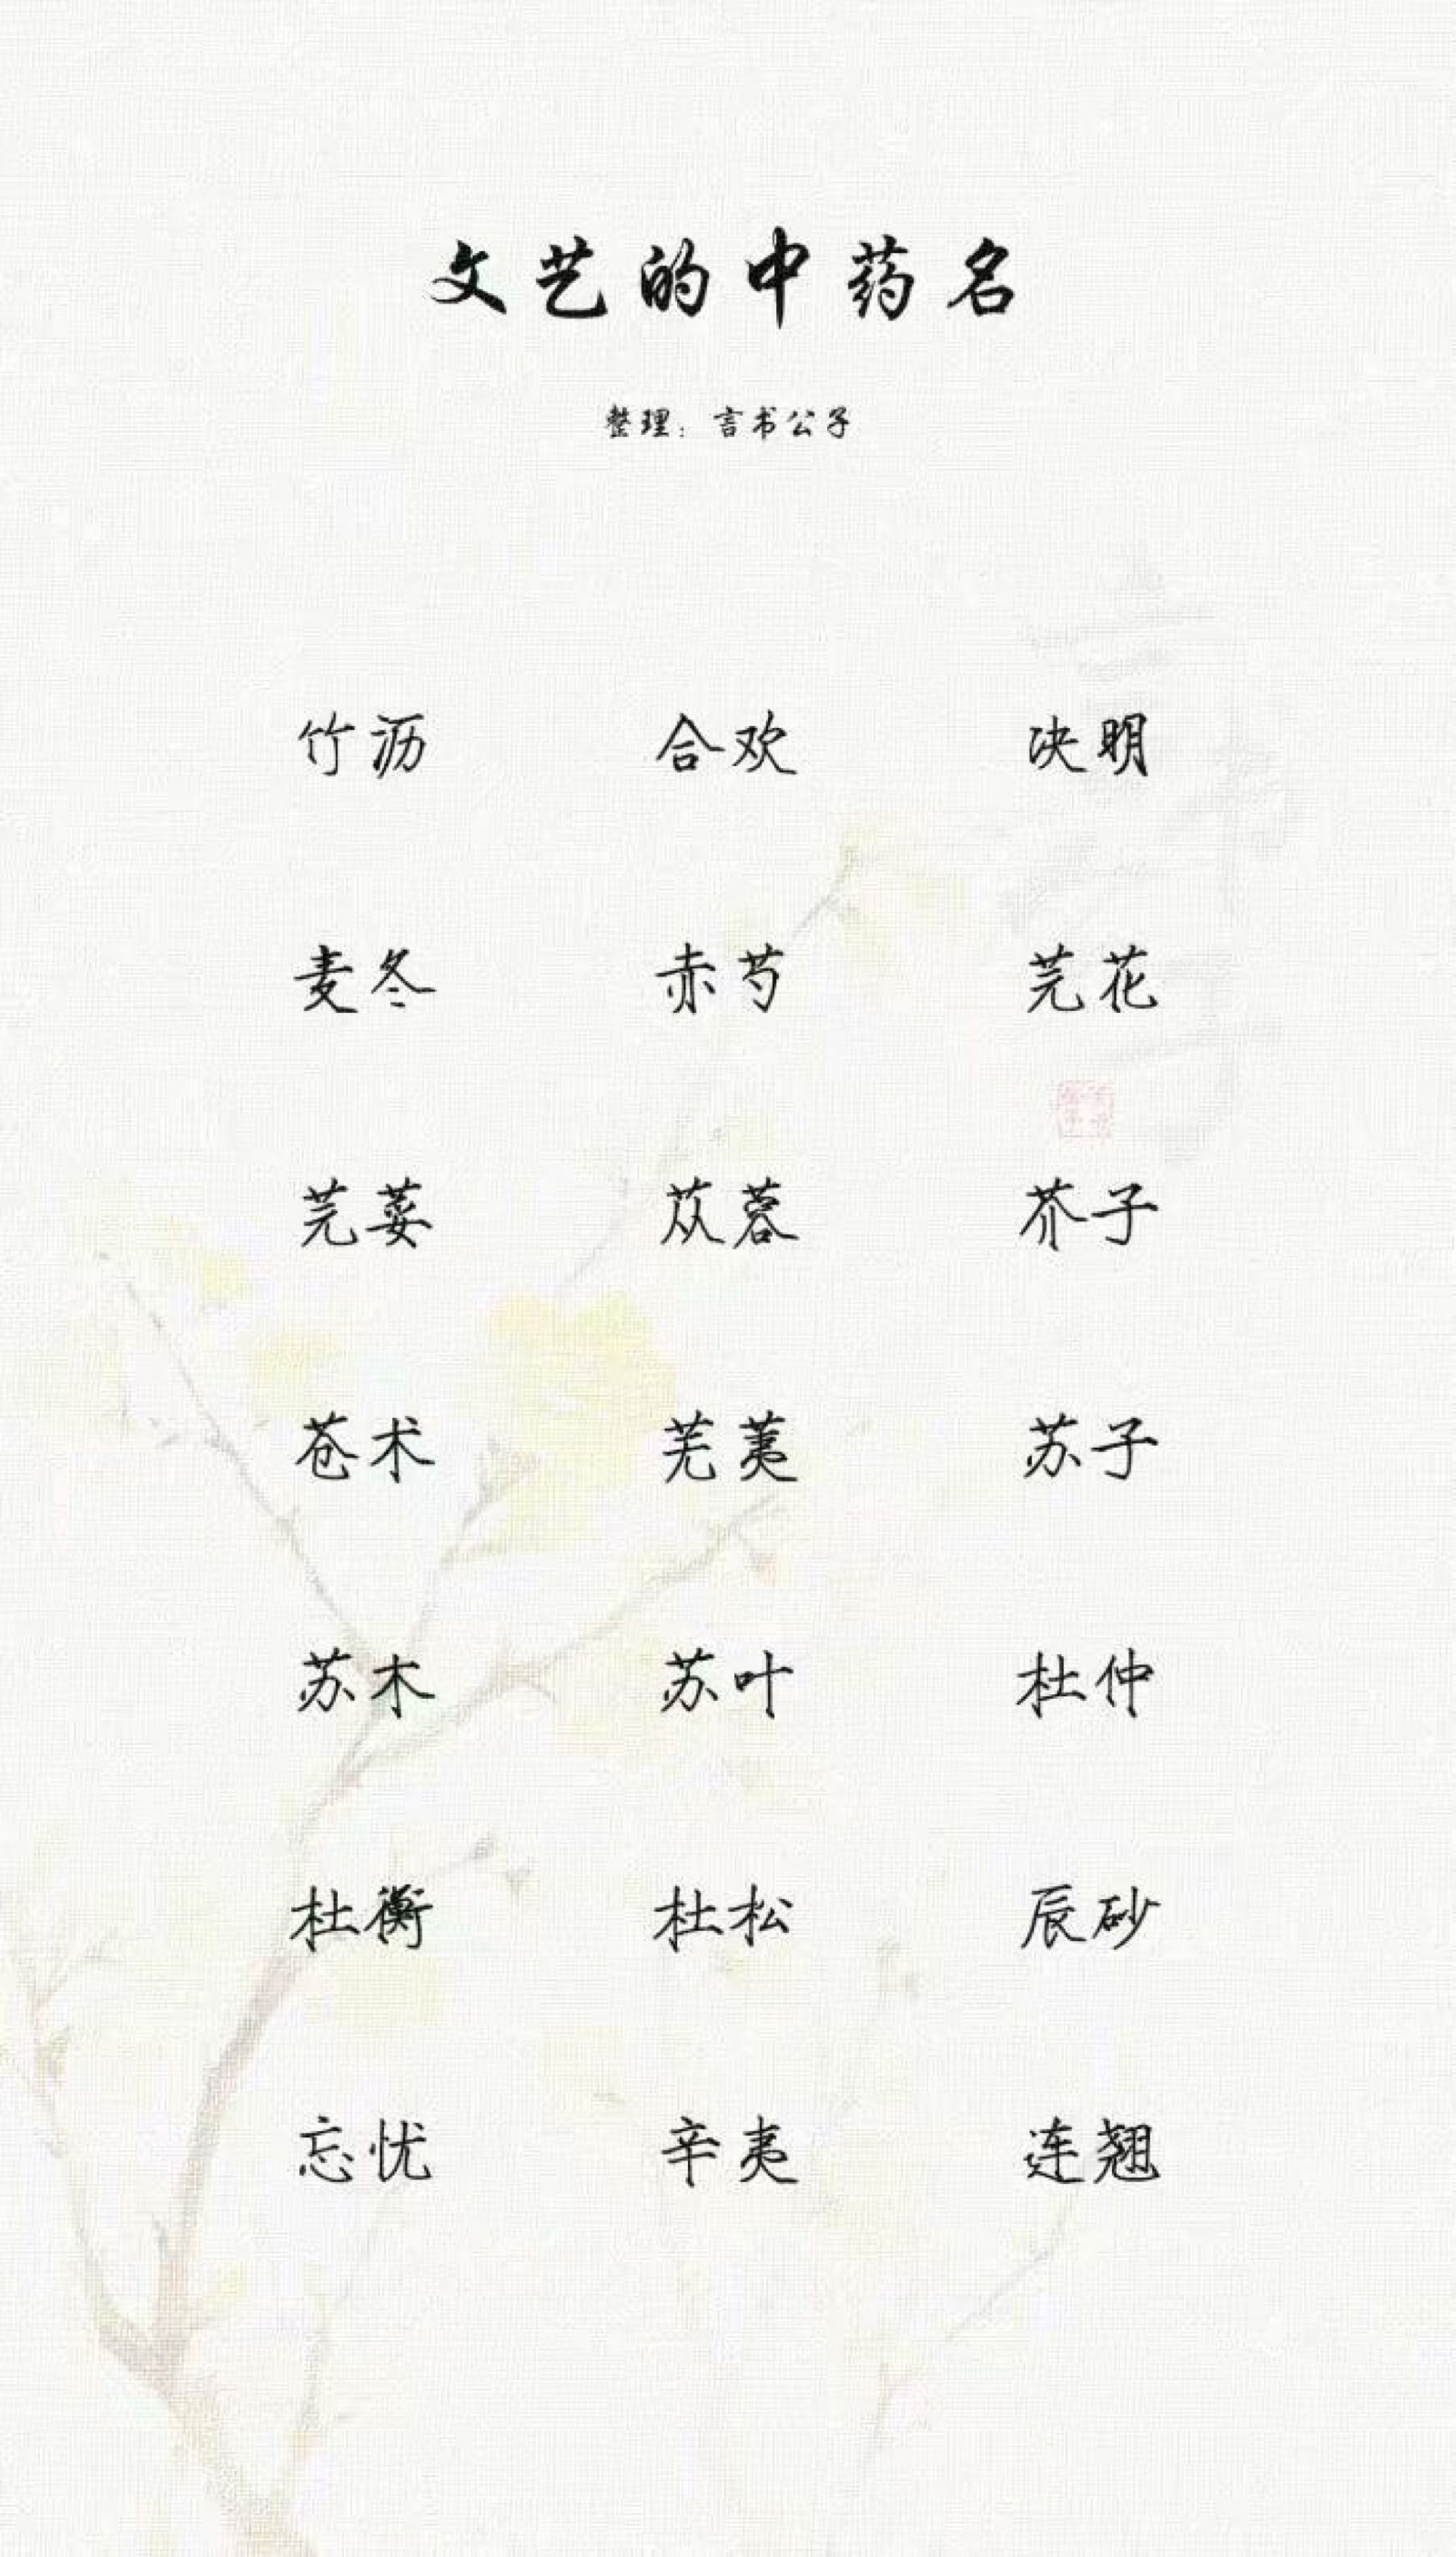 文艺的中药名
整理：言书公子
竹沥 合欢 决明
麦冬 赤芍 芫花
芫荽 苁蓉 芥子
苍术 芜荑 苏子
苏木 苏叶 杜仲
杜衡 杜松 辰砂
忘忧 辛夷 连翘